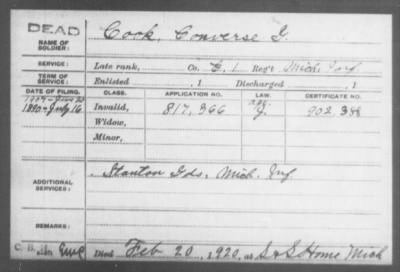 DEAD
NAME OF SOLDIER: Cook, Converse G.
SERVICE: Late rank, Co. G, 1 Reg't Mich. Inf
TERM OF SERVICE: Enlisted , 1 Discharged , 1
DATE OF FILING. CLASS. APPLICATION NO. LAW. CERTIFICATE NO.
1880-July 16 Invalid, 817,366 J. 902 388
Widow,
Minor,
ADDITIONAL SERVICES: Stanton Gds. Mich. Inf
REMARKS:
C. B. Died Feb 20, 1920, at S&S Home Mich